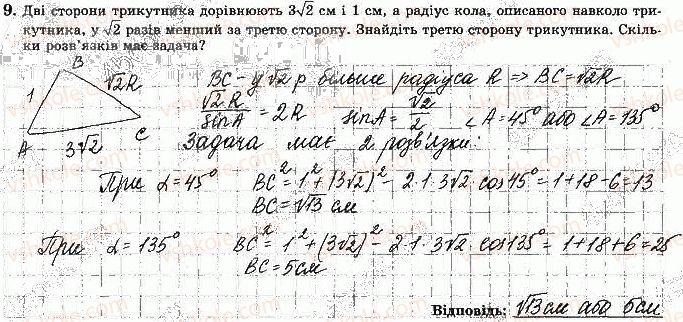 9. Дві сторони трикутника дорівнюють 3√2 см і 1 см, а радіус кола, описаного навколо три-
кутника, у √2 разів менший за третю сторону. Знайдіть третю сторону трикутника. Скіль-
ки розв'язків має задача?
B
1
√2R
A
3√2
C
BC - у √2 р більше радіуса R ⇒ BC = √2R
√2R/sinA = 2R sinA = √2/2 ∠A = 45° або ∠A = 135°
Задача має 2 розв'язки:
При α = 45° BC² = 1² + (3√2)² - 2·1·3√2·cos45° = 1+18-6 = 13
BC = √13 см
При α = 135° BC² = 1² + (3√2)² - 2·1·3√2·cos135° = 1+18+6 = 25
BC = 5см
Відповідь: √13 см або 5см